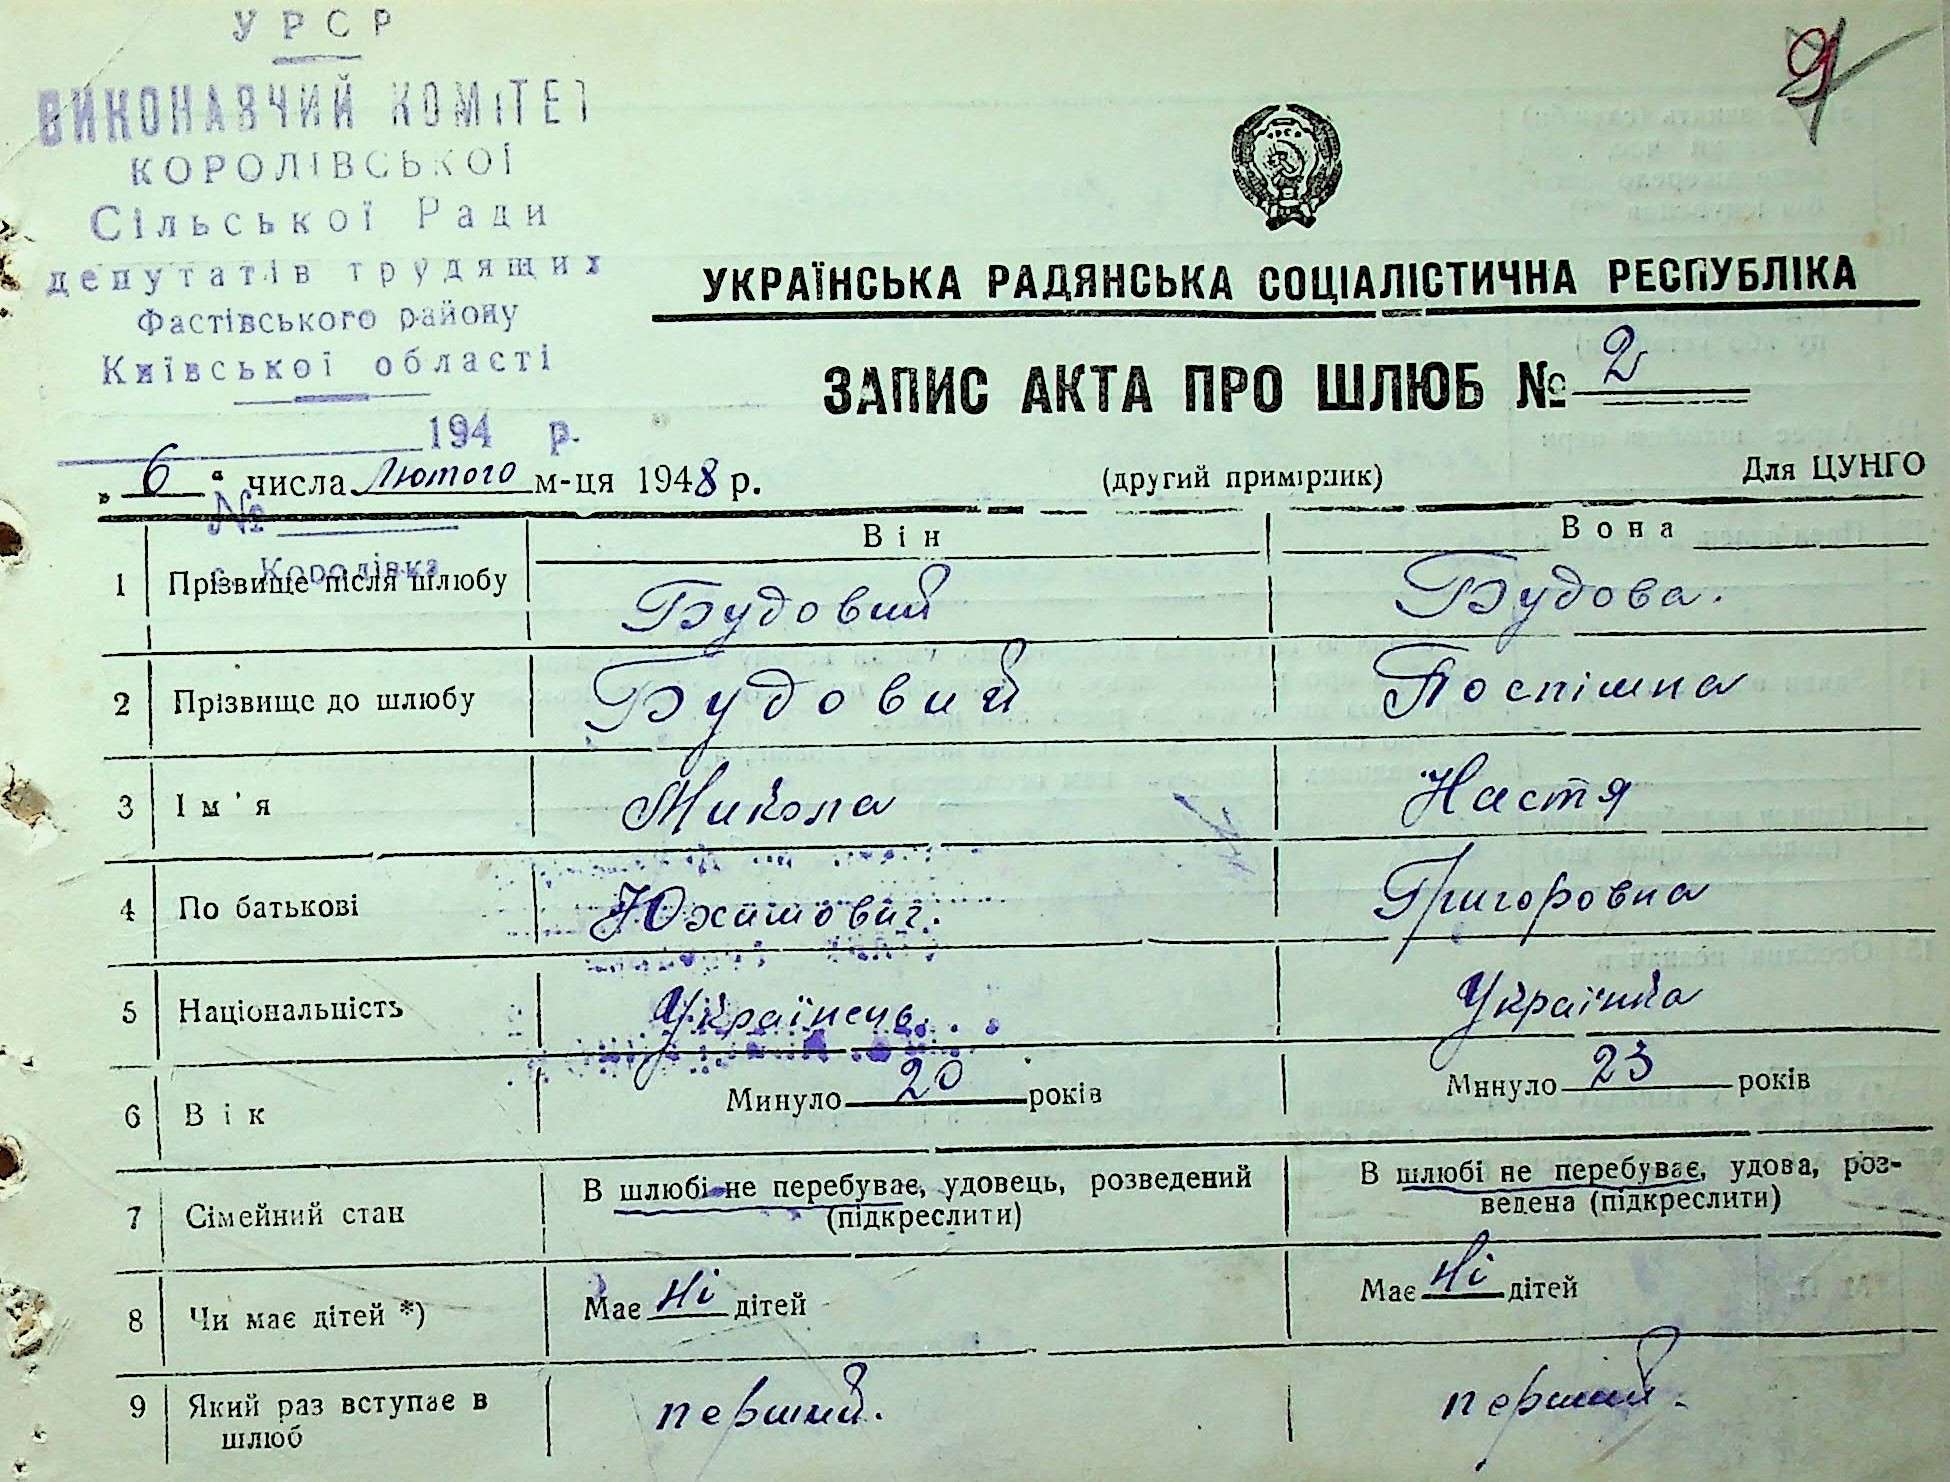 УРСР
ВИКОНАВЧИЙ КОМІТЕТ
КОРОЛІВСЬКОЇ
Сільської Ради
депутатів трудящих
Фастівського району
Київської області
194 р.
№
с. Королівка
9
УКРАЇНСЬКА РАДЯНСЬКА СОЦІАЛІСТИЧНА РЕСПУБЛІКА
ЗАПИС АКТА ПРО ШЛЮБ № 2
„6“ числа Лютого м-ця 1948 р. (другий примірник) Для ЦУНГО
Він Вона
1 Прізвище після шлюбу Будовий Будова.
2 Прізвище до шлюбу Будовий Поспішна
3 Ім'я Микола Настя
4 По батькові Юхимович. Григоровна
5 Національність Українець. Українка
6 Вік Минуло 20 років Минуло 23 років
7 Сімейний стан В шлюбі не перебуває, удовець, розведений (підкреслити) В шлюбі не перебуває, удова, роз-
ведена (підкреслити)
8 Чи має дітей *) Має Ні дітей Має Ні дітей
9 Який раз вступає в шлюб перший. перший.